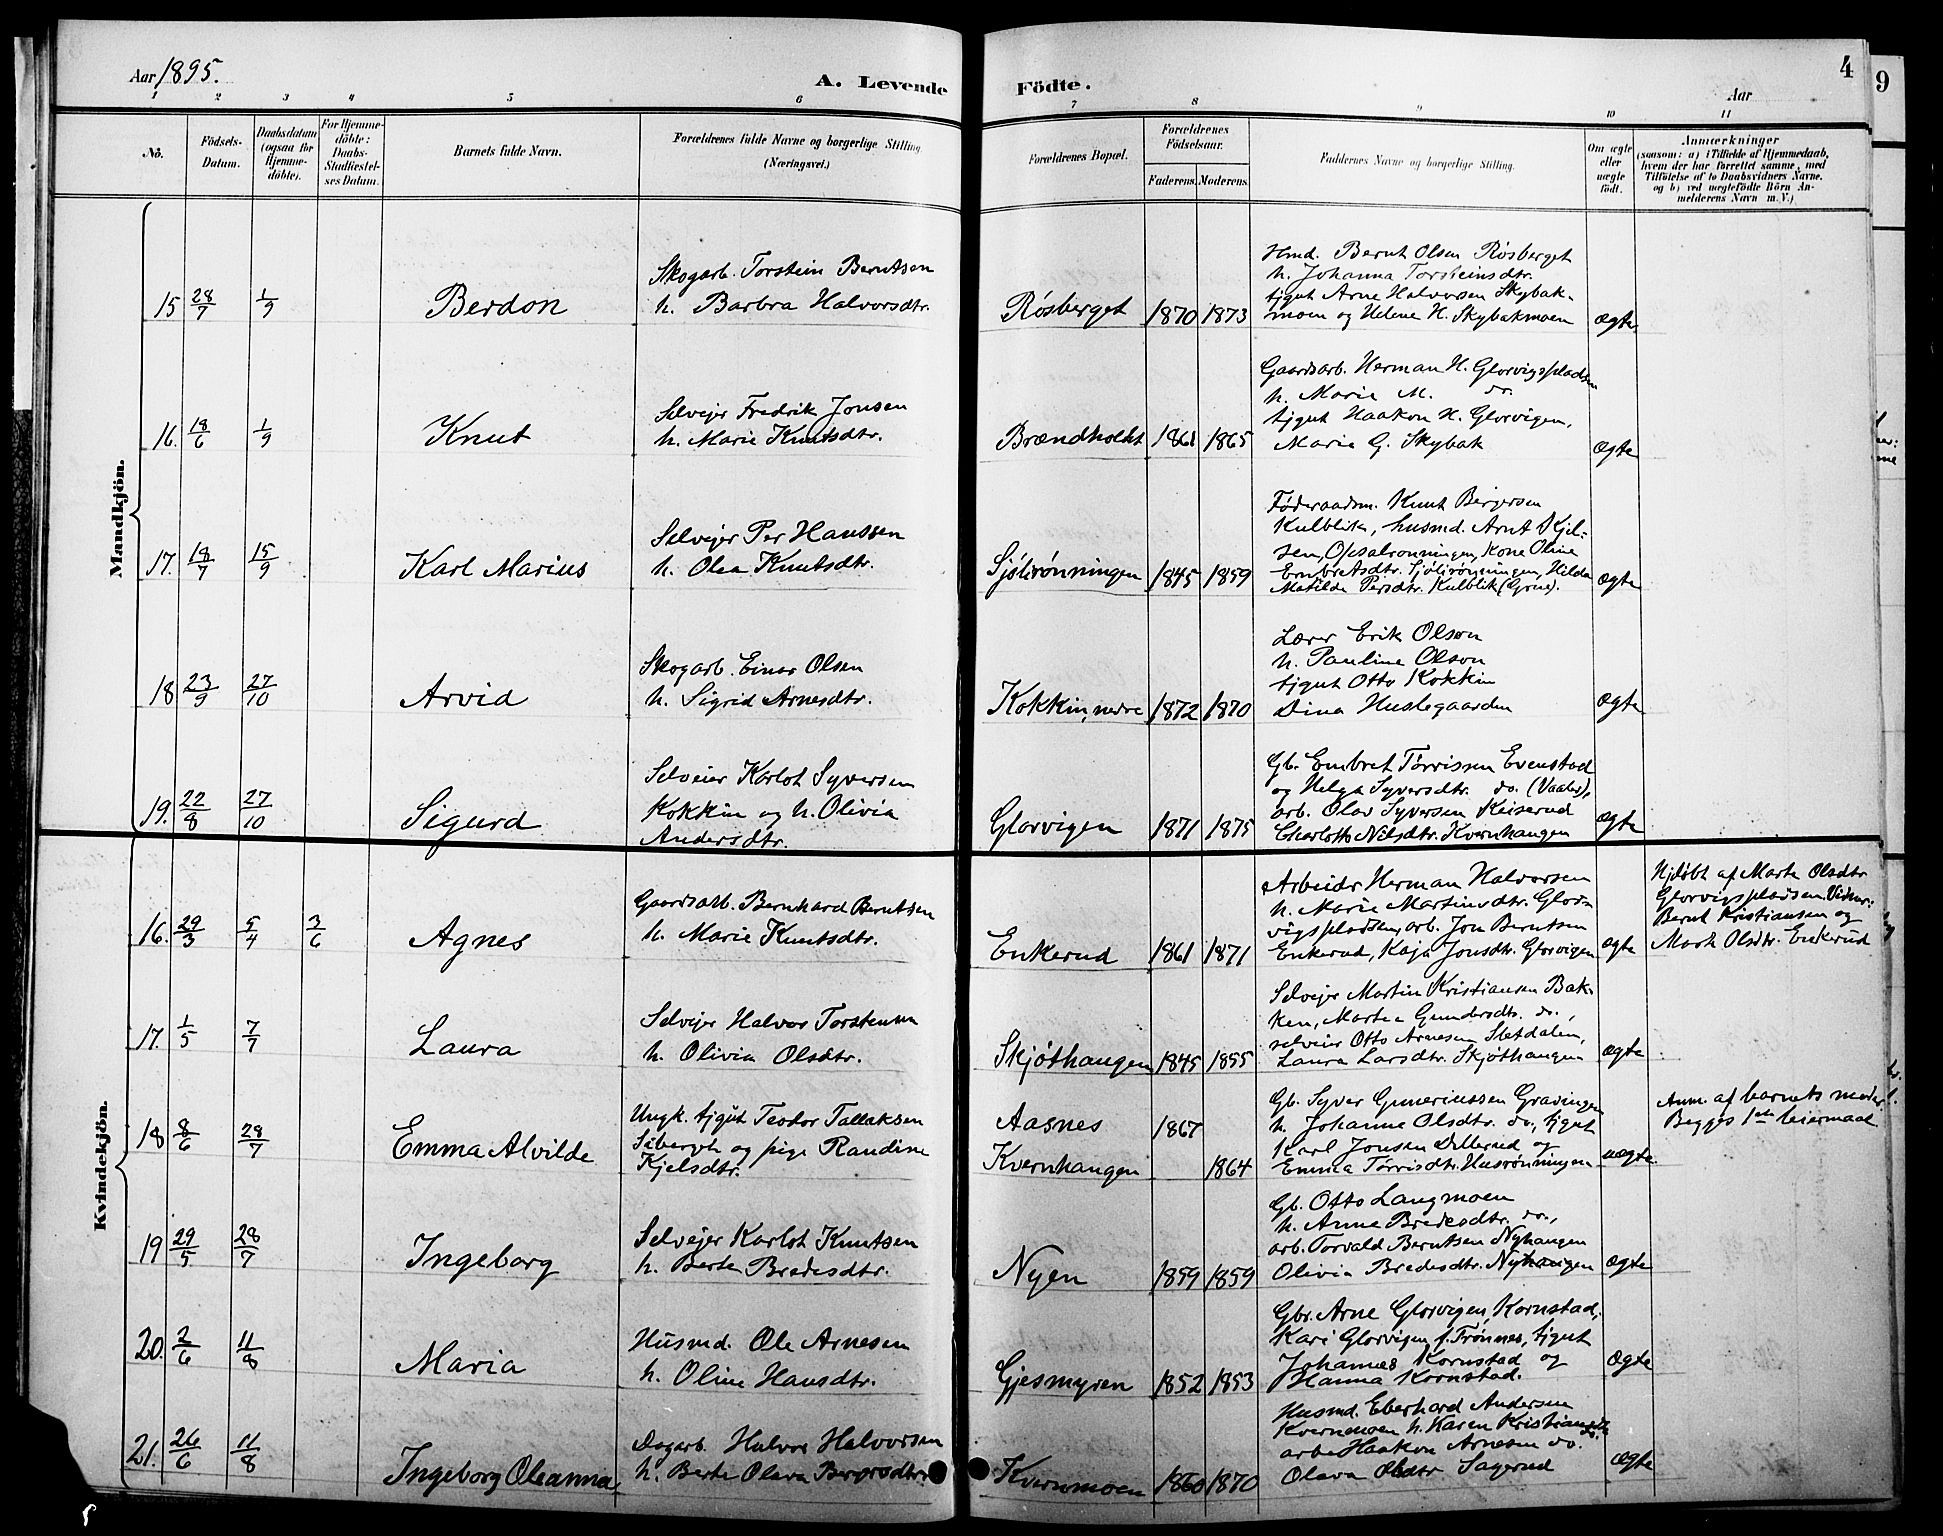 Aar 1895.
A. Levende Födte.
Aar
4
9
1 2 3 4 5 6 7 8 9 10 11
No.
Födsels-Datum.
Daabsdatum (ogsaa for Hjemme-döbte).
For Hjemme-döbte: Daabs-Stadfæstel-ses Datum.
Barnets fulde Navn.
Forældrenes fulde Navne og borgerlige Stilling (Næringsvei.)
Forældrenes Bopæl.
Forældrenes Födselsaar.
Faderens.
Moderens.
Faddernes Navne og borgerlige Stilling.
Om ægte eller uægte födt.
Anmærkninger
(saasom: a) i Tilfælde af Hjemmedaab,
hvem der har forrettet samme, med
Tilföielse af to Daabsvidners Navne.
og b) ved uægtefödte Börn An-
melderens Navn m. V.)
Mandkjön.
15 28/7 1/9
Berdon
Skogarb. Torstein Berntsen
h. Barbra Halvorsdtr.
Røsberget 1870 1873
Hmd. Bernt Olsen Røsberget
h. Johanna Torsteinsdtr.
tjgut Arne Halvorsen Skybak-
moen og Helene H. Skybakmoen
ægte
16. 18/6 1/9
Knut
Selvejer Fredrik Jonsen
h. Marie Knutsdtr.
Brændholtet 1861 1865
Gaardsarb. Herman H. Glorvigspladsen
h. Marie M. do.
tjgut Haakon H. Glorvigen,
Maria G. Skybak
ægte
17. 18/7 15/9
Karl Marius
Selvejer Per Hanssen
h. Olea Knutsdtr.
Sjölirønningen 1845 1859
Føderaadsm. Knut Birgersen
Kulblik, husmd. Arnt Kjel-
sen, Opsalrønningen, Kone Oline
Embretsdtr. Sjölirønningen, Hilda
Matilde Persdtr. Kulblik (Grue).
ægte
18 23/9 27/10
Arvid
Skogarb. Einar Olsen
h. Sigrid Arnesdtr.
Kokkin, nedre 1872 1870
Lærer Erik Olsen
h. Pauline Olsen
tjgut Otto Kokkin
Dina Huslegaarden
ægte
19. 22/8 27/10
Sigurd
Selveier Karlot Syversen
Kokkin og h. Olivia
Andersdtr.
Glorvigen 1871 1875
Gb. Embret Tørrissen Evenstad
og Helga Syversdtr. do. (Vaaler),
arb. Olav Syversen Keiserud
Charlotte Nilsdtr. Kvernhaugen
ægte
Kvindekjön.
16. 29/3 5/4 3/6
Agnes
Gaardsarb. Bernhard Berntsen
h. Marie Knutsdtr.
Enkerud 1861 1871
Arbeider Herman Halvorsen
h. Marie Martinsdtr. Glor-
vigspladsen, arb. Jon Berntsen
Enkerud, Kaja Jonsdtr. Glorvigen
ægte
Hjdøbt af Marte Olsdtr
Glorvigspladsen. Vidner:
Bernt Kristiansen og
Marte Olsdtr. Enkerud
17. 1/5 7/7
Laura
Selvejer Halvor Torstensen
h. Olivia Olsdtr.
Skjøthaugen 1845 1855
Selvejer Martin Kristiansen Bak-
ken, Martea Gundersdtr. do.,
selveier Otto Arnesen Sletdalen,
Laura Larsdtr. Skjøthaugen
ægte
18 8/6 28/7
Emma Alvilde
Ungk. tjgut Teodor Tallaksen
Sibergh og pige Randine
Kjelsdtr.
Aasnes 1867
Kvernhaugen 1864
Gb. Syver Gunerinssen Gravingen
h. Johanne Olsdtr. do, tjgut
Karl Jonsen Dellerud og
Emma Tørrisdtr. Husrønningen
uægte
Anm. af barnets moder.
Begges 1ste leiermaal
19 29/5 28/7
Ingeborg
Selvejer Karlot Knutsen
h. Berte Bredesdtr.
Nyen 1859 1859
Gb. Otto Langmoen
h. Anne Bredesdtr. do.,
arb. Torvald Berntsen Nyhaugen
Olivia Bredesdtr. Nyhaugen
ægte
20. 2/6 11/8
Maria
Husmd. Ole Arnesen
h. Oline Hansdtr.
Gjesmyren 1852 1853
Gbr. Arne Glorvigen, Kornstad,
Kari Glorvigen f. Trønnes, tjgut
Johannes Kornstad og
Hanna Kornstad.
ægte
21. 26/6 11/8
Ingeborg Oleanna
Dagarb. Halvor Halvorsen
h. Berte Olava Bersvsdtr.
Kvernmoen 1860 1870
Husmd. Eberhard Andersen
Kvernmoen h. Karen Kristiansdtr
arb. Haakon Arnesen do.
Olava Olsdtr Sagerud
ægte